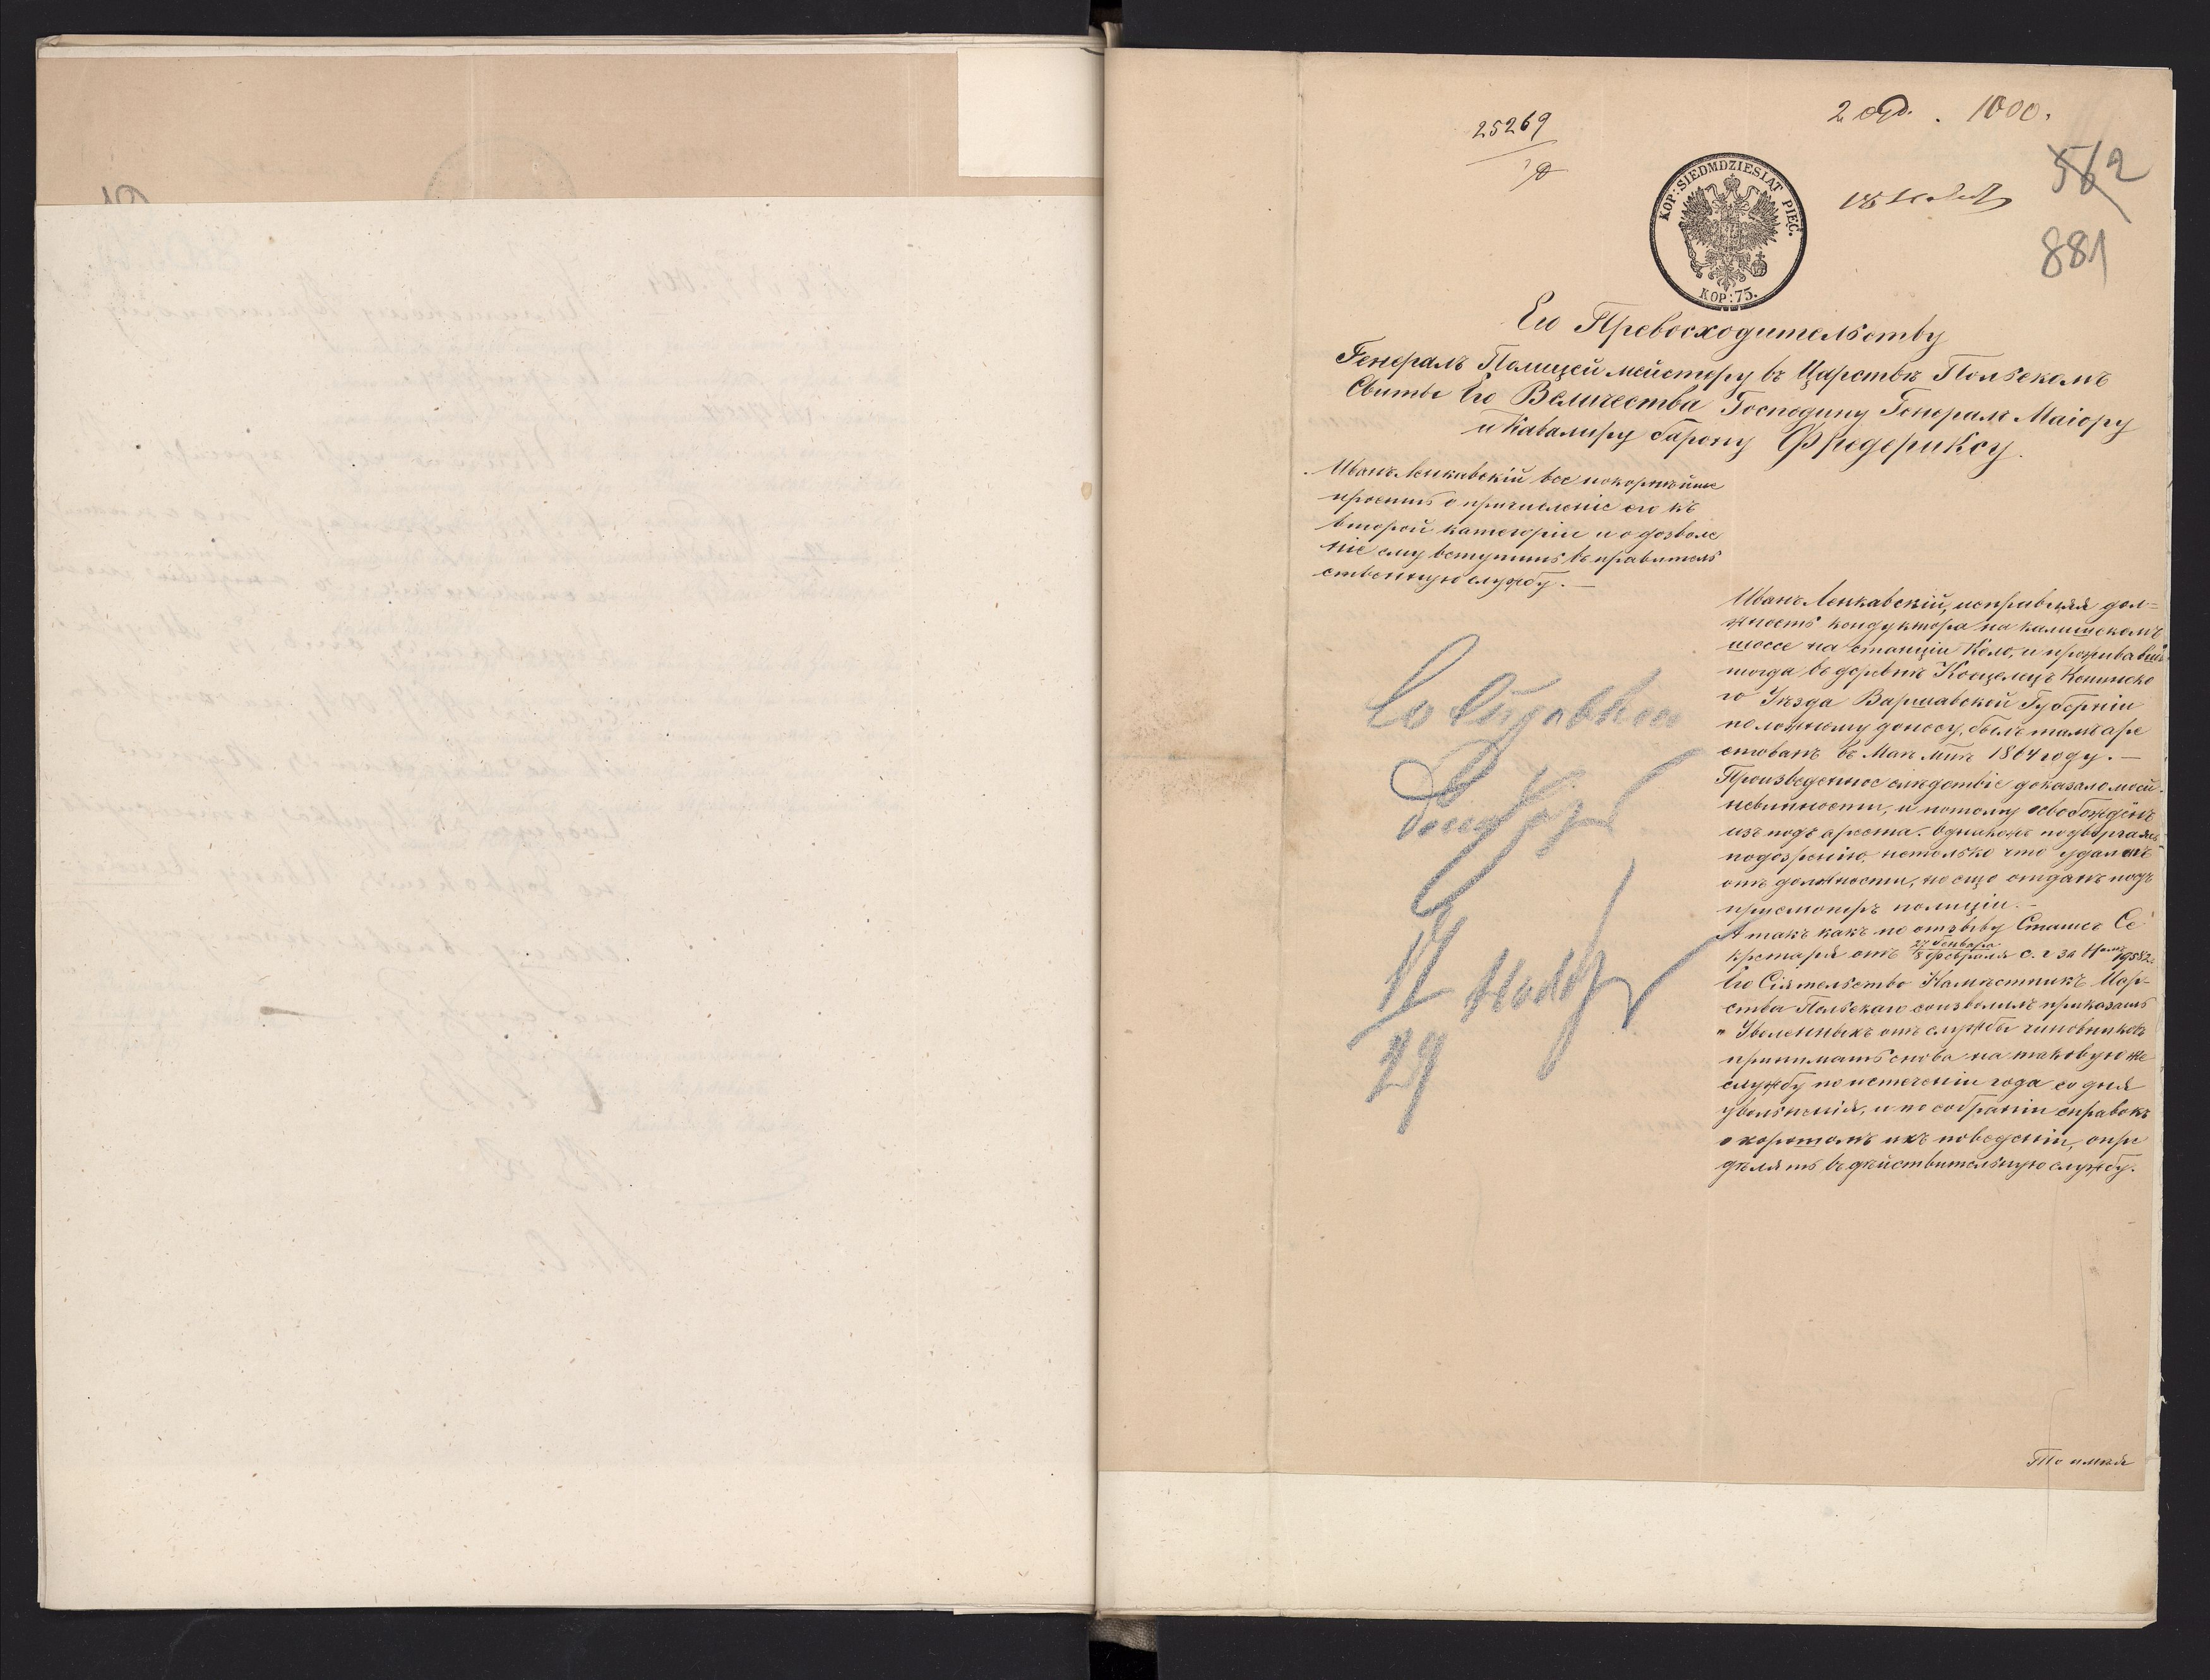 25269
2 отд. 1000.
562
881
KOP: SIEDMDZIESIAT PIĘC.
KOP: 75.
Его Превосходительству
Генералъ Полицеймейстеру въ Царствѣ Польскомъ
Свиты Его Величества Господину Генералъ Маіору
и Кавалеру барону Фредериксу.
Иванъ Ленкавскій все покорнѣйше
проситъ о причисленіе его къ
второй категоріи и о дозволе
ніе ему вступить въ правитель
ственную службу.—
Иванъ Ленкавскій, исправляя дол=
жность кондуктора на калишскомъ
шоссе на станціи Коло, и проживавшій
тогда въ деревнѣ Косцелецъ Конинска
го Уѣзда Варшавской Губерніи
по ложному доносу, былъ тамъ аре
стованъ въ Маѣ Мцѣ 1864 году.—
Произведенное слѣдствіе доказало моей
невинности, и потому освобождёнъ
изъ подъ ареста. Однакоже подвергаясь
подозрѣнію, нетолько что удалёнъ
отъ должности, но еще отданъ подъ
присмотръ полиціи.—
А такъ какъ по отзыву Статсъ Се
кретаря отъ 27 Генваря / 8 Февраля с. г за Номъ 19582
Его Сіятельство Намѣстникъ Цар-
ства Польскаго соизволилъ приказать
" Уволенныхъ отъ службы чиновниковъ
принимать снова на таковую же
службу по истеченіи года со дня
увольненія, и по собраніи справокъ
о хорошомъ ихъ поведеніи, опре
дѣлять въ дѣйствительную службу.
17 Нояб
29
То имѣя